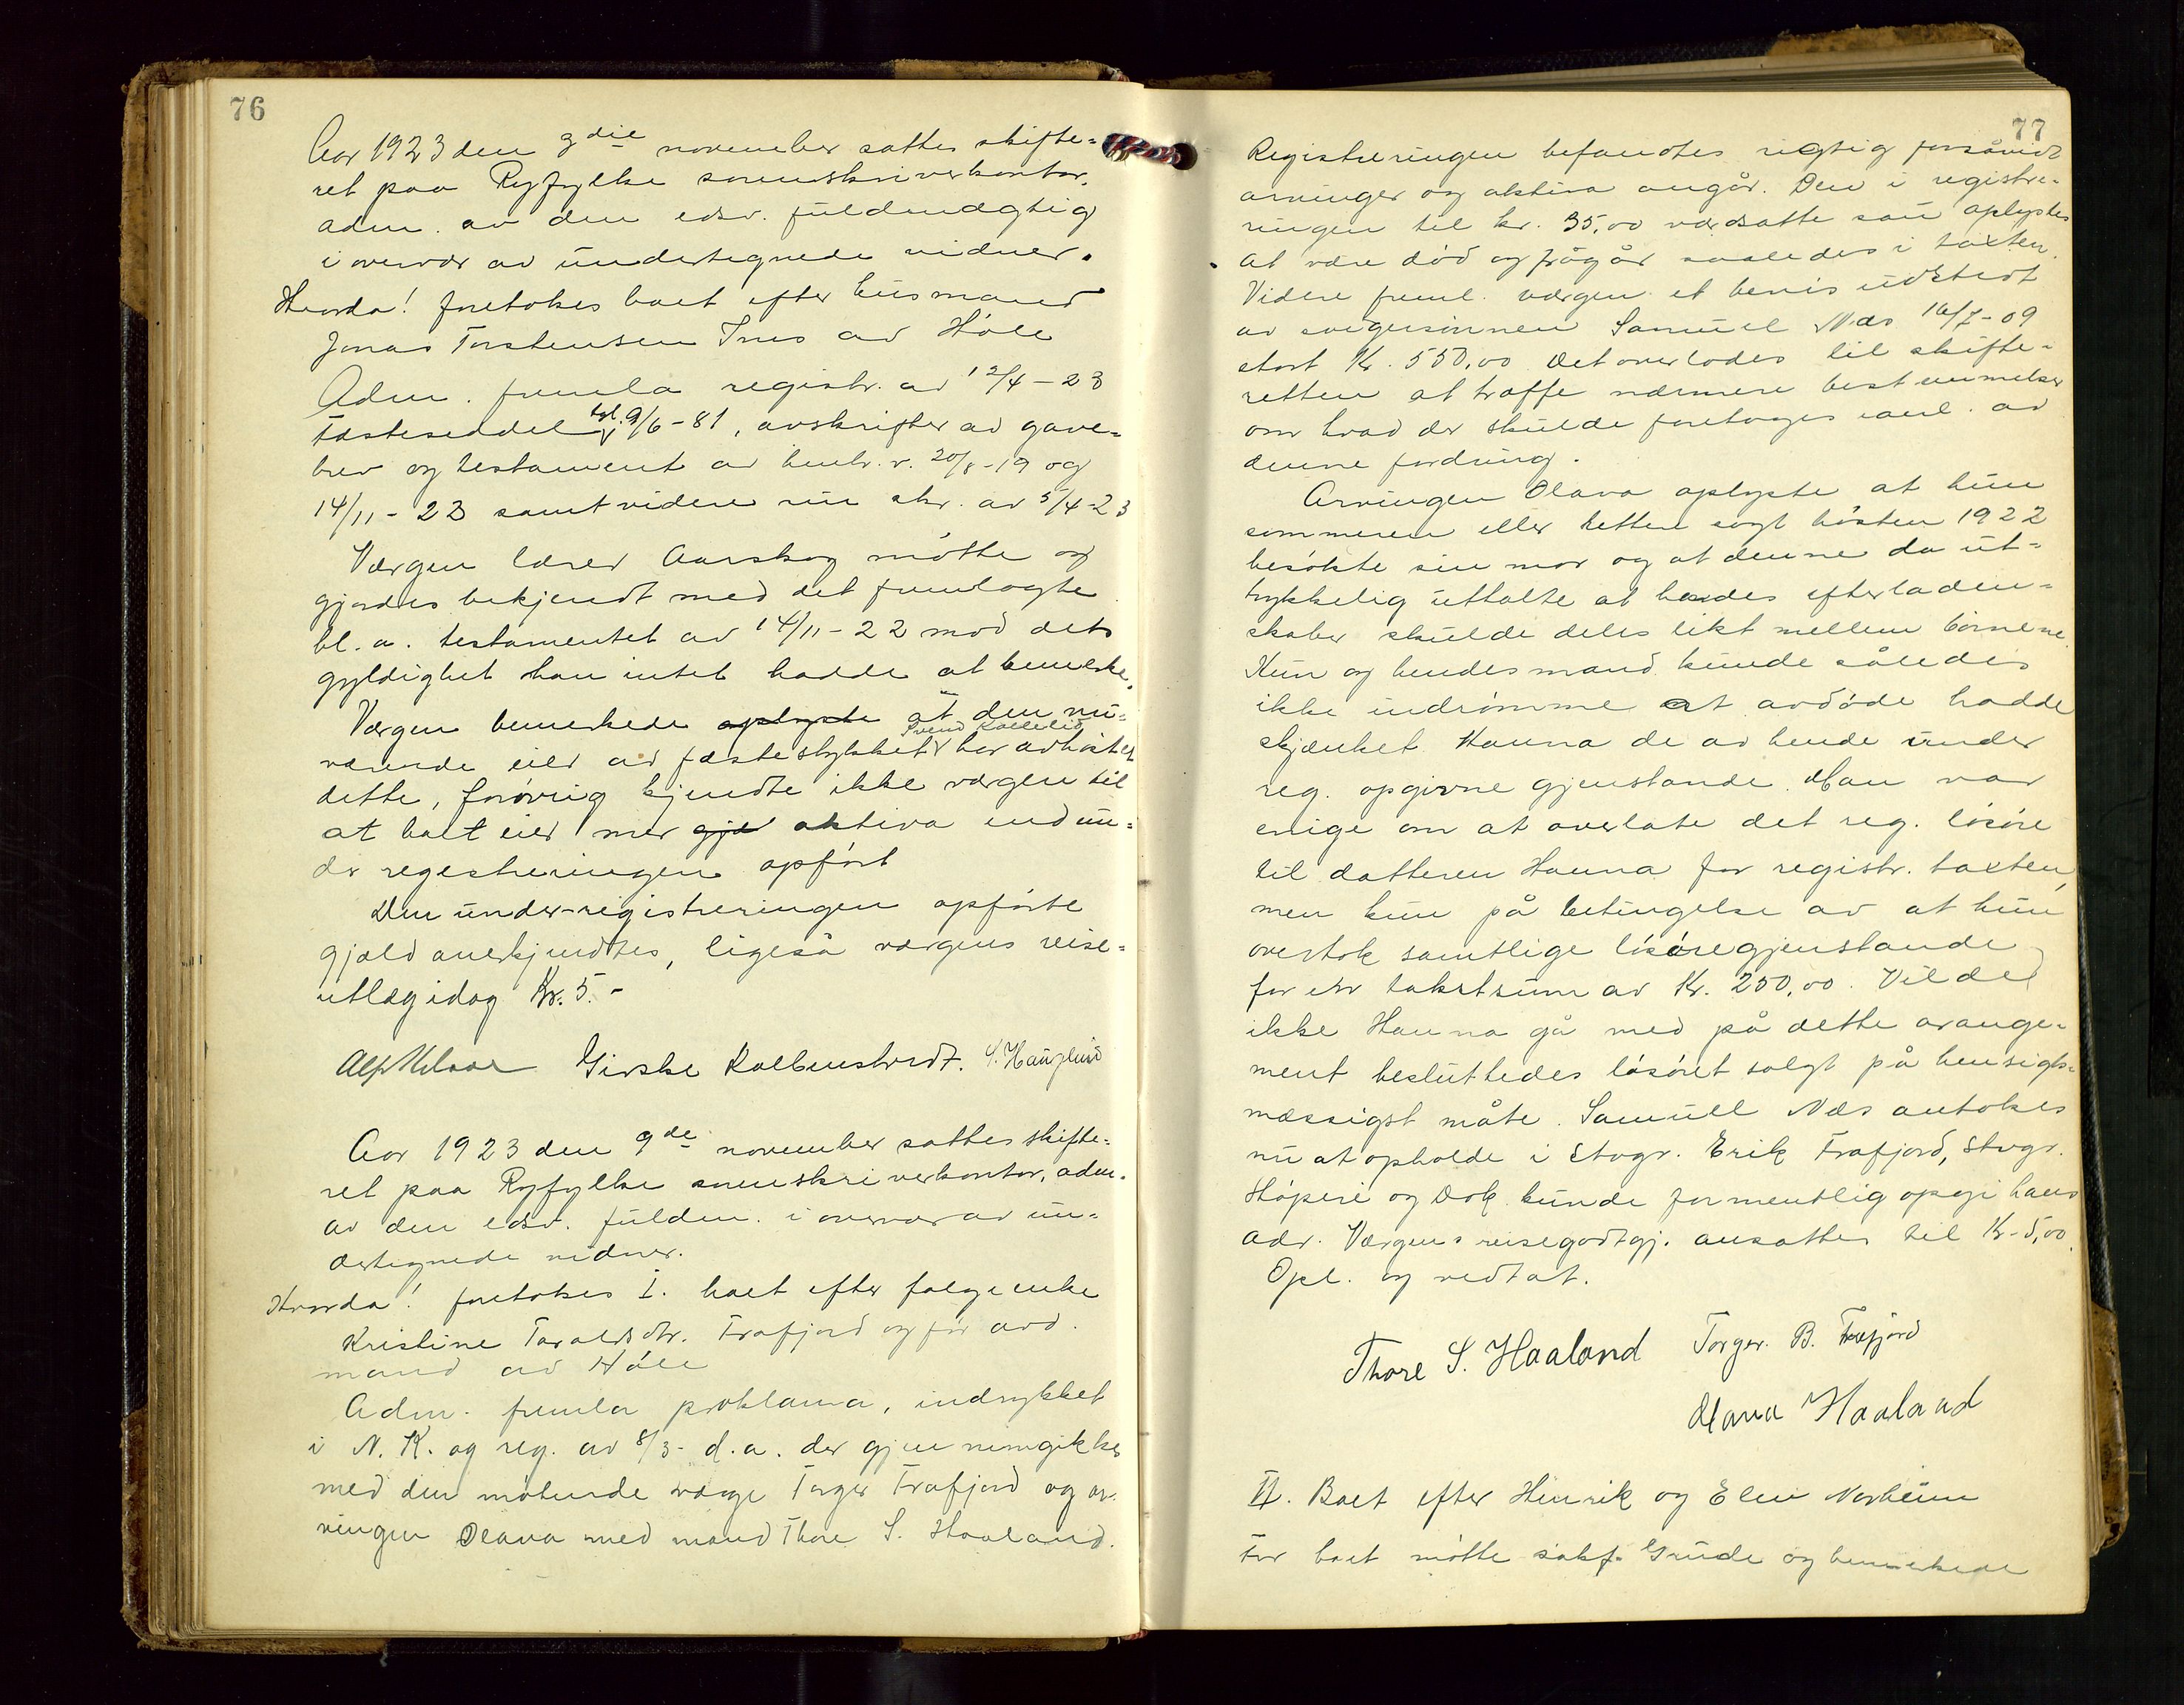 76
Aar 1923 den 3die november sattes skifte-
ret paa Ryfylke sorenskriverkontor,
adm. av den edsv. fuldmægtig
i overvær av undertegnede vidner.
Hvorda! foretokes boet efter husmand
Jonas Torstensen Ims av Høle
Adm. fremla registr. av 12/4-23
Fæsteseddel tgl. 9/6-81, avskrifter av gave-
brev og testament av henh.v. 20/8-19 og
14/11-23 samt videre skr. av 5/4-23
Værgen lærer Aarskog møtte og
gjordes bekjendt med det fremlagte
bl.a. testamentet av 14/11-22 mod dets
gyldighet han intet hadde at bemerke.
Værgen bemerkede oplyste at den nu-
værende eier av fæstestykket Svend Kollelid har avhøstet
dette, forøvrig kjendte ikke værgen til
at boet eier mer gjæ aktiva end un-
der regestreringen opført
Den under registreringen opførte
gjæld anerkjendtes, ligeså værgens reise-
utlæg idag Kr. 5.-
Girske Kolbenstvedt. S. Hauglund
Aar 1923 den 9de november sattes skifte-
ret paa Ryfylke sorenskriverkontor, adm.
av den edsv. fuldm. i overvær av un-
dertegnede vidner.
Hvorda! foretokes I. boet efter følgeenke
Kristine Taraldsdtr. Frafjord og før avd.
mand av Høle
Adm. fremla proklama, indrykket
i N.K. og reg. av 8/3- d.a. der gjennemgikkes
med den møtende værge Torger Frafjord og ar-
vingen Olava med mand Thore S. Haaland.
77
Registreringen befandtes rigtig forsåvidt
arvinger og aktiva angår. Den i registre-
ringen til kr. 35,00 værdsatte sau oplystes
at være død og frågår saaledes i taxten.
Videre freml. værgen et bevis utstedt
av svigersønnen Samuel Næs 16/7-09
stort Kr. 550,00 Det overlodes til skifte-
retten at træffe nærmere bestemmelser
om hvad der skulde foretages i anl. av
denne fordring.
Arvingen Olava oplyste at hun
sommeren eller rettere sagt høsten 1922
besøkte sin mor og at denne da ut-
trykkelig uttalte at hendes efterladen-
skaber skulde deles likt mellem børnene
Hun og hendes mand kunde således
ikke indrømme at avdøde hadde
skjænket Hanna de av hende under
reg. opgivne gjenstande. Man var
enige om at overlate det reg. løsøre
til datteren Hanna for registr. taxten,
men kun på betingelse av at hun
overtok samtlige løsøregjenstande
for en takstsum av Kr. 250,00. Vilde
ikke Hanna gå med på dette arange-
ment besluttedes løsøret solgt på hensigts-
mæssigst måte. Samuel Næs antokes
nu at opholde i Stvgr. Erik Frafjord, Stvgr.
Støperi og Dok kunde formentlig opgi hans
adr. Værgens reisegodtgj. ansattes til Kr. 5,00.
Opl. og vedtat.
Thore S. Haaland Torger. B. Frafjord
Olava Haaland
II. Boet efter Henrik og Elen Norheim
For boet møtte sakf. Grude og bemerkede